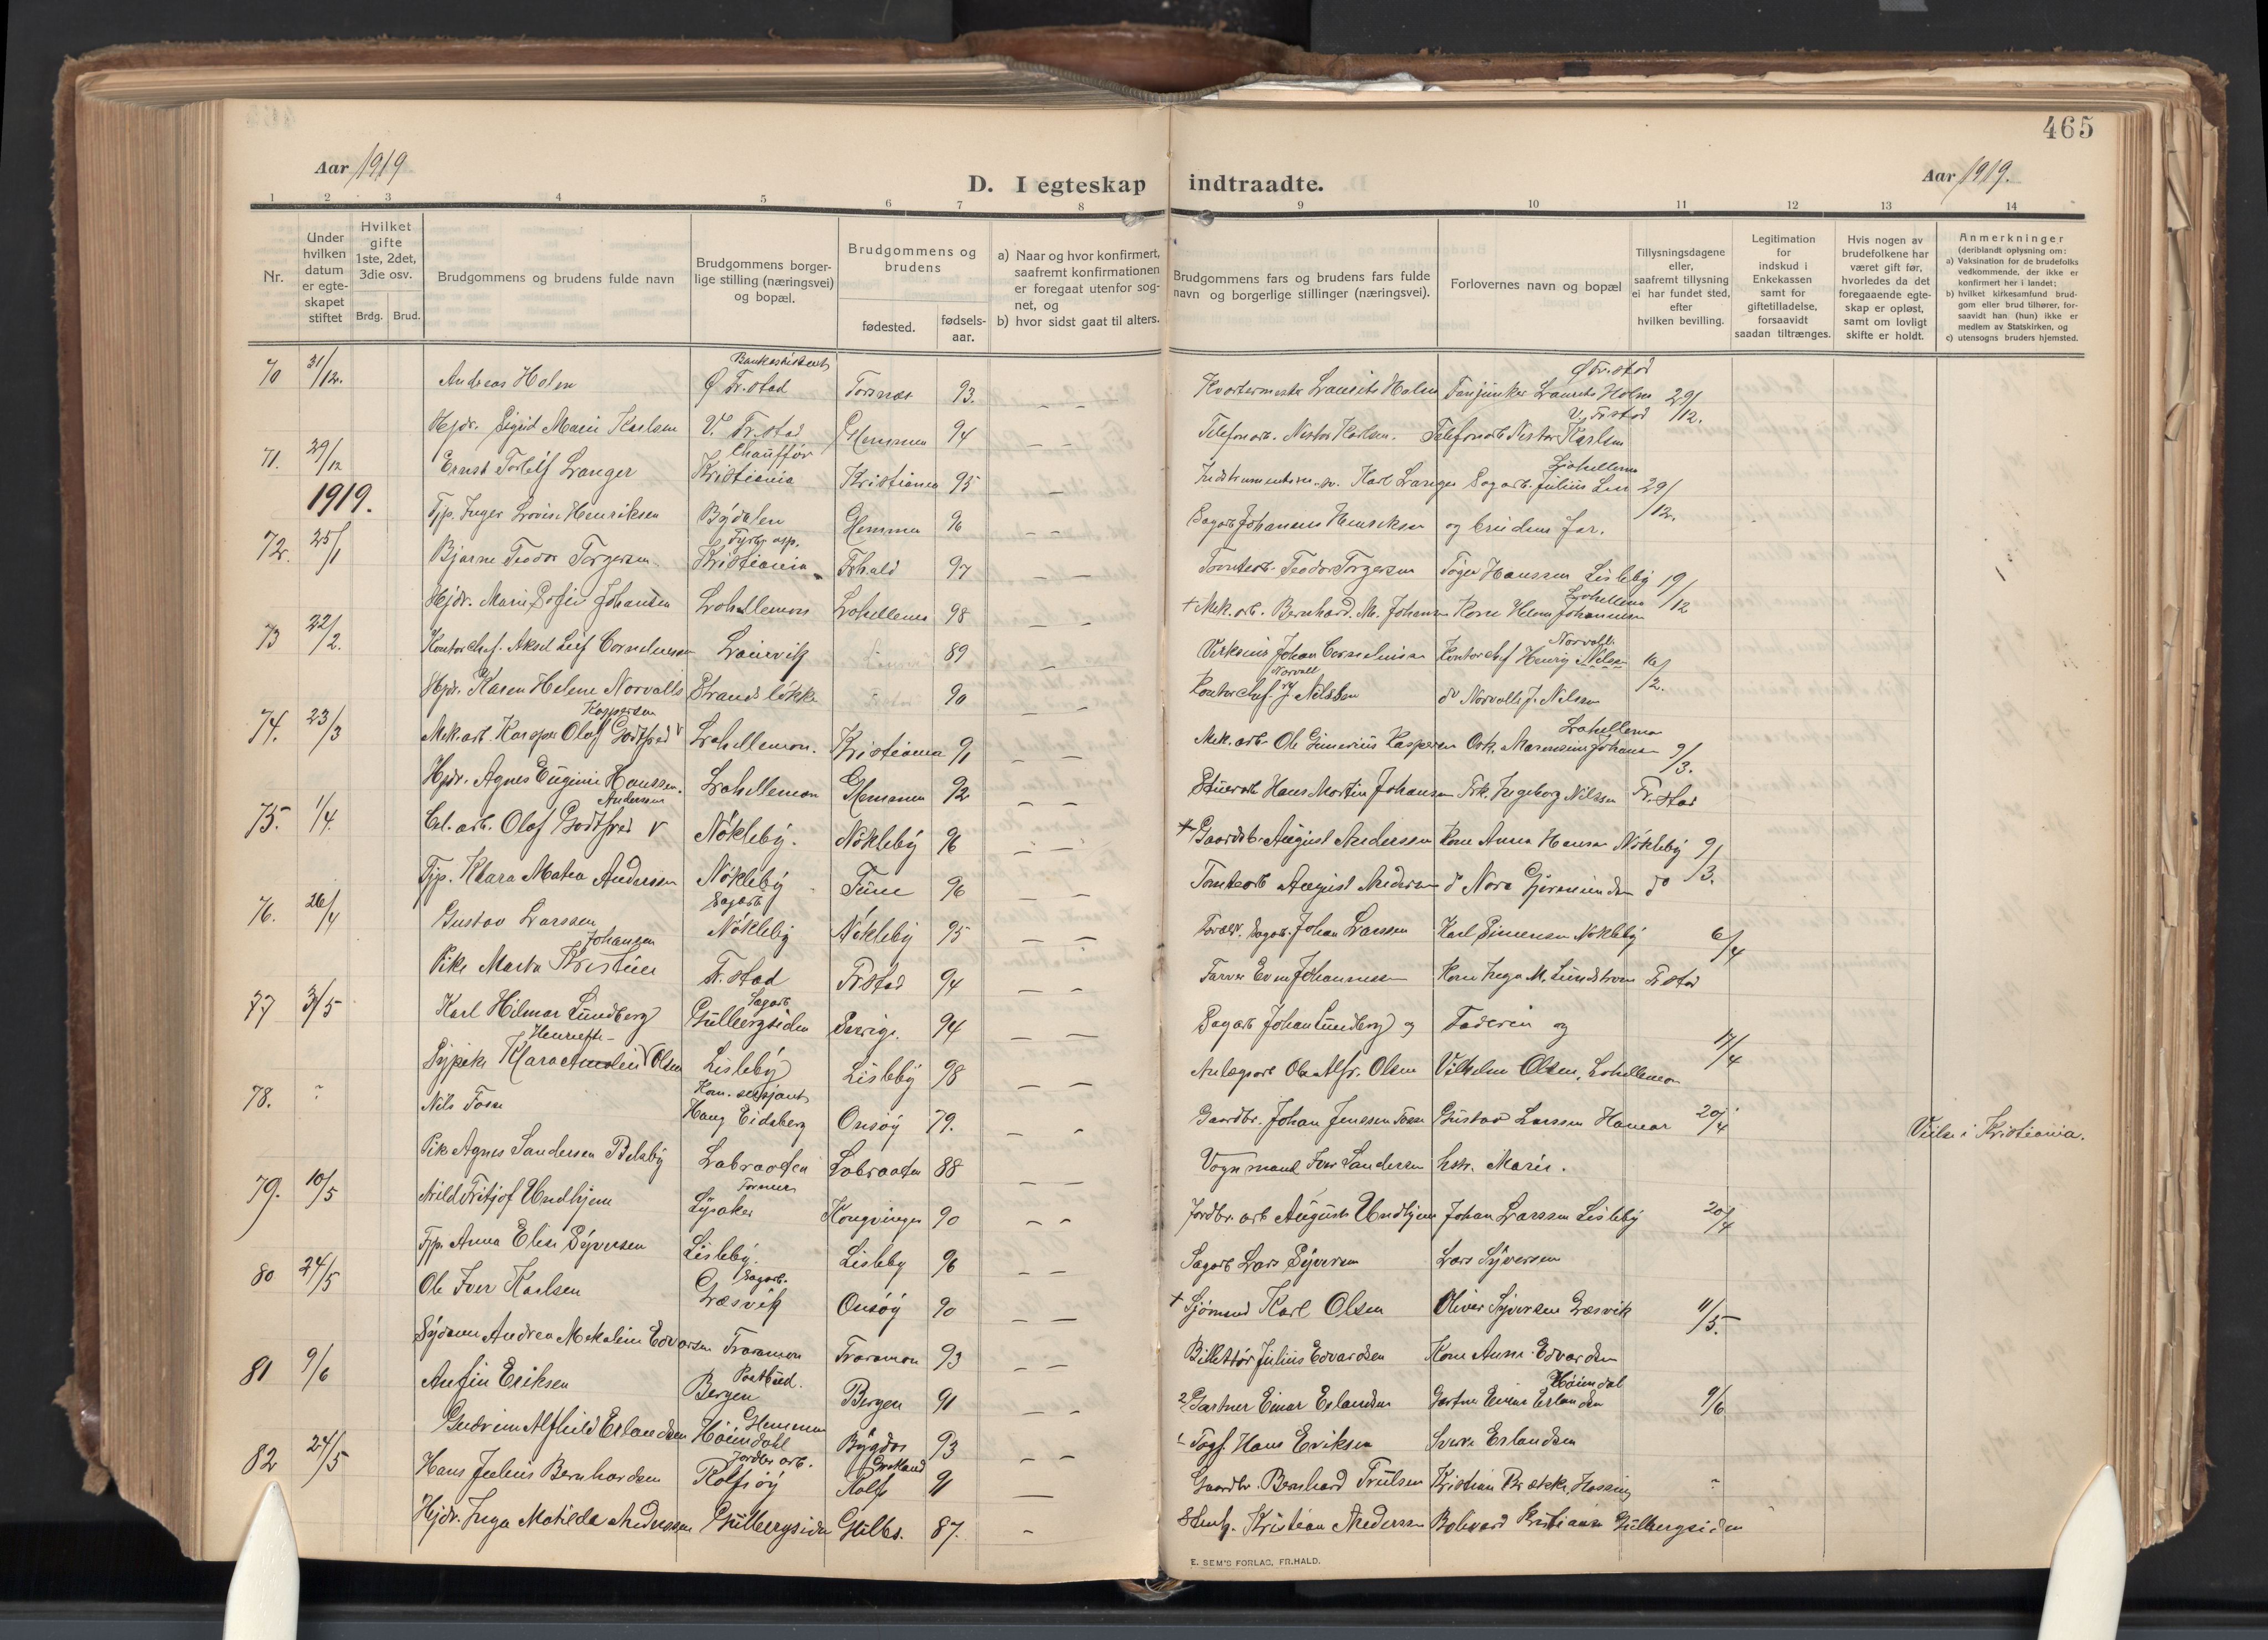 465
Aar 1919
D. I egteskap indtraadte.
Aar 1919.
1 2 3 4 5 6 7 8 9 10 11 12 13 14
Nr.
Under hvilken datum er egteskapet stiftet
Hvilket gifte 1ste, 2det, 3die osv.
Brdg. Brud.
Brudgommens og brudens fulde navn
Brudgommens borgerlige stilling (næringsvei) og bopæl.
Brudgommens og brudens
fødested.
fødselsaar.
a) Naar og hvor konfirmert, saafremt konfirmationen er foregaat utenfor sognet, og
b) hvor sidst gaat til alters.
Brudgommens fars og brudens fars fulde navn og borgerlige stillinger (næringsvei).
Forlovernes navn og bopæl
Tillysningsdagene eller, saafremt tillysning ei har fundet sted, efter hvilken bevilling.
Legitimation for indskud i Enkekassen samt for giftetilladelse, forsaavidt saadan tiltrænges.
Hvis nogen av brudefolkene har været gift før, hvorledes da det foregaaende egteskap er opløst, samt om lovligt skifte er holdt.
Anmerkninger
(deriblandt oplysning om:
a) Vaksination for de brudefolks vedkommende, der ikke er konfirmert her i landet;
b) hvilket kirkesamfund brudgom eller brud tilhører, forsaavidt han (hun) ikke er medlem av Statskirken, og
c) utensogns bruders hjemsted.
70 31/12. Andreas Holm Bankassistent Ø Fr.stad Torsnæs 93. Kvartermester Laurits Holm Fanjunker Laurits Holm Ø Fr.stad 29/12.
Hjdr. Sigrid Marie Karlsen V. Fr.stad Glemmen 94 Telefonarb. Nestor Karlsen. Telefonarb Nestor Karlsen V. Fr.stad
71. 29/12 Ernst Torleif Langer Chauffør Kristiania Kristiania 95 Karl Langer Sagarb. Julius Lohellema 29/12.
1919.
Tjp. Inger Lovise Henriksen Bydalen Glemmen 96 Sagarb Johannes Henriksen og brudens far.
72. 25/1 Bjarne Teodor Torgersen Fyrb. asp. Kristiania Frhald 97 Tomtearb. Teodor Torgersen Hanssen Lisleby 19/12
Hjdr. Marie Sofie Johansen Lohellemon Lohellemon 98 + Mek. arb. Bernhard. M. Johansen Kone Helene Johannesen Lohellemon
73 22/2. Kontorchef. Aksel Leif Corneliussen Laurvik " 89 Johan Corneliussen Kontorchef Henrig Nilsen Norvalls 16/2.
Hjdr. Karen Helene Norvalls Strandsløkke " 90 Kontorchef. J Norvall Nilssen do Norvalls J. Nilssen
74. 23/3 Mek.arb. Kaspar Olaf Godtfred Kaspersen Lohellemon. Kristiania 91 Mek. arb. Ole Gunerius Kaspersen Johansen Lohellemon 9/3.
Hjdr. Agnes Eugenie Hanssen. Lohellemon Glemmen 92 Stuerarb Hans Martin Johansen Frk. Ingeborg Nilssen Fr.stad
75. 1/4. Cel. arb. Olaf Godtfred Anderssen Nökleby. Nökleby 96 + Gaardbr. August Anderssen Kone Anna Hansen Nökleby 9/3.
Tjp. Klara Matea Andersen Nökleby Tune 96 Tomtearb August Andersen do Nora do
76. 26/4 Gustav Larssen Sagarb Nökleby Nökleby 95 Sagarb. Johan Larssen Karl Simensen Nökleby 6/4
Pike Marta Kristine Johansen Fr.stad Fr.stad 94 Farver Even Johannessen Kone Inga M. Lundstrøm Fr.stad
77 3/5 Karl Hilmar Lundberg Sagarb Gulbergsiden Sverige. 94 Sagarb Johan Lundberg og Faderen og 17/4
Sypike Klara Amalie Henriette Olsen Lisleby Lisleby 98 Anlægsarb Ole Alfr. Olsen Vilhelm Olsen, Lohellemon
78. " Nils Foss Kom. sersjant Haug Eidsberg Onsøy 79. Gaardbr. Johan Jenssen Foss Gustav Larssen Hamar 20/4 Viilse i Kristiania.
Pike Agnes Sandersen Labraaten Labraaten 88 Vognmand Iver Sandersen hstr. Marie.
79. 10/5 Arild Fritjof Undhjem Former Lysaker Kongvinger 90 Jordbr. arb August Undhjem Johan Larssen Lisleby 20/4
Tjp. Anna Elise Syversen Lisleby. Lisleby 96 Sagarb Lars Syversen Lars Syversen
80 24/5 Ole Iver Karlsen Sagarb. Græsvik Onsøy 90 + Sjömand Karl Olsen Oliver Syversen Græsvik 11/5.
Sydame Andrea Mekaline Edvarsen Traramon Traramon 93 Billettör Julius Edvardsen Kone Anna Edvardsen
81 9/6 Anfin Eriksen Postbud. Bergen Bergen 91 2 Gartner Einar Erlandsen Gartner Einar Erlandsen Høiendal 9/6
Gudrun Alfhild Erlandsen Glemmen Høiendahl Bygdø 93 1 Togf. Hans Eriksen Sverre Erlandsen
82 24/5 Hans Julius Bernhardsen Jordbr arb. Rolfsøy Rolfs Grekland 91 Gaardbr. Bernhard Trulsen Kristian Brække, Hassing "
Hjdr. Inga Matilde Anderssen Gulbergsiden Gulbs. 87. Stenh. Kristian Anderssen Kristiansen Gulbergsiden
E. SEM'S FORLAG, FR.HALD.